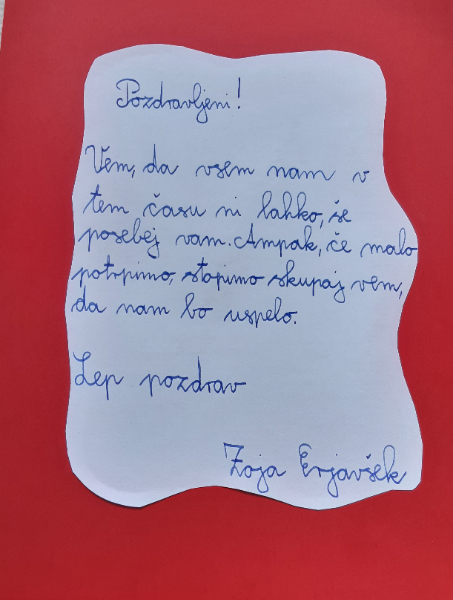 Pozdravljeni!
Vem, da vsem nam v
tem času ni lahko, še
posebej vam. Ampak, če malo
potrpimo, stopimo skupaj vem,
da nam bo uspelo.
Lep pozdrav
Zoja Erjavšek